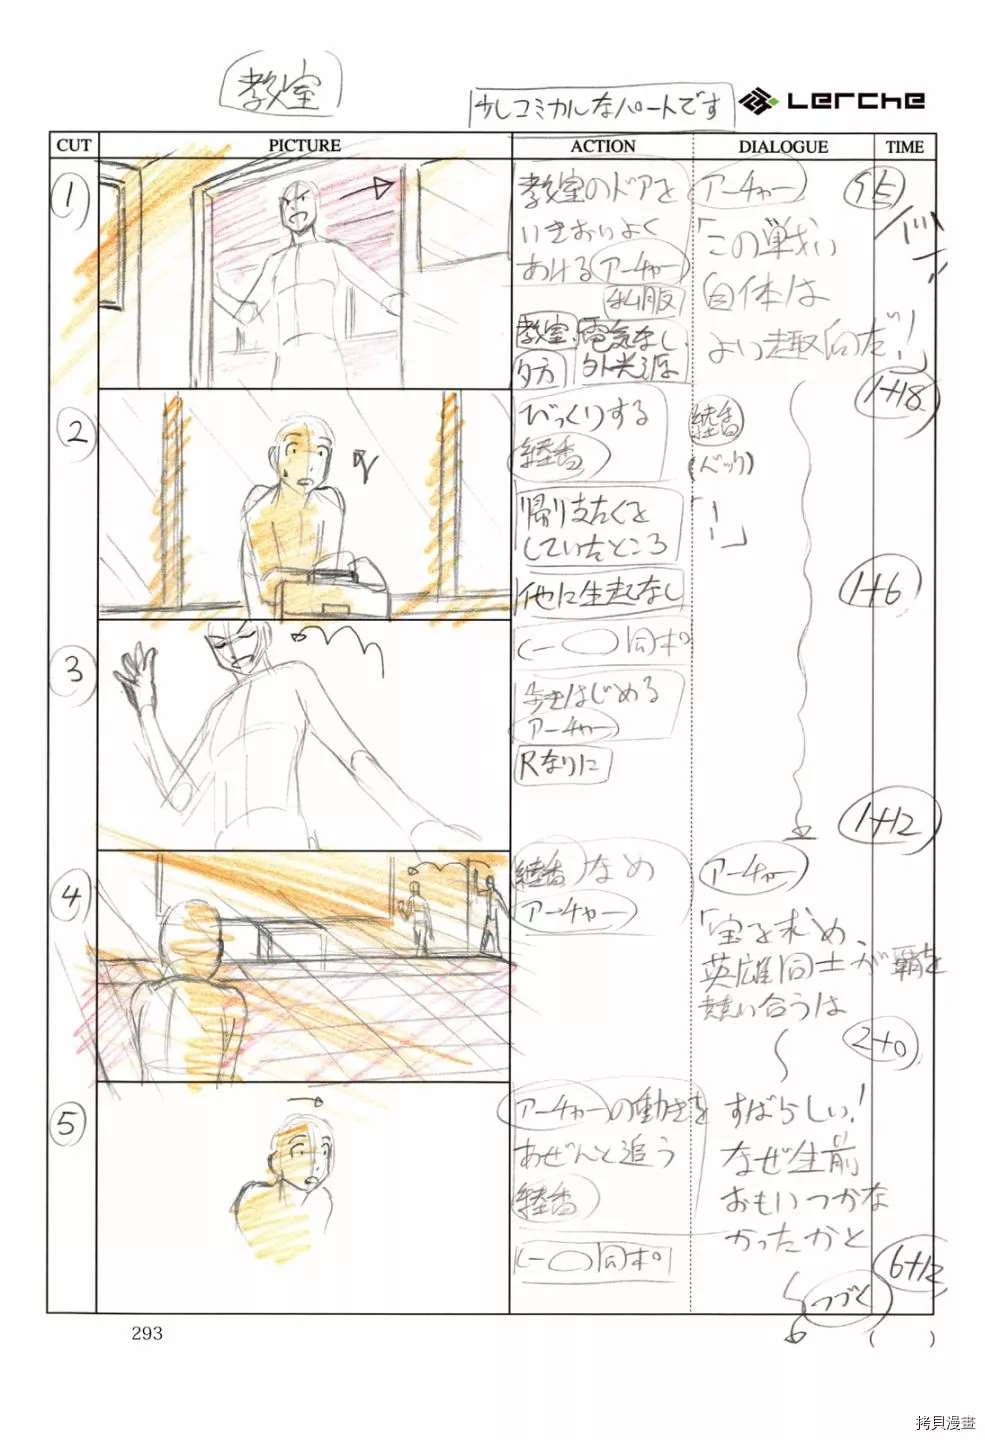 教室
少しコミカルなパートです
Lerche
CUT
PICTURE
ACTION
DIALOGUE
TIME
1
教室のドアを
いきおいよく
あける アーチャー
私服
教室 電気なし、
夕方 外光源
アーチャー
「この戦い
自体は
よい趣向だ!」
1+18
2
びっくりする
帰り支たくを
していたところ
他に生走なし
「!」
1+6
3
同ポ
歩きはじめる
アーチャー
Rなりに
1+12
4
なめ
アーチャー
アーチャー
「宝を求め、
英雄同士が覇を
競い合うは
2+0
5
アーチャーの動きを
あぜんと追う
同ポ
すばらしい!
なぜ生前
おもいつかな
かったかと
6+12
つづく
( )
293
拷貝漫畫